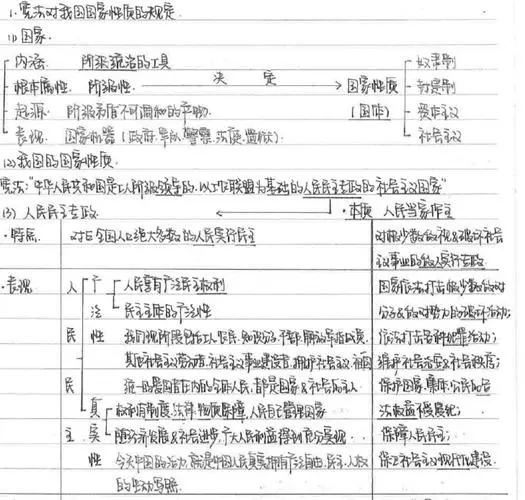 1. 宪法对我国国家性质的规定
(1) 国家
内涵: 阶级统治的工具 奴隶制
根本属性: 阶级性 决定 国家性质 封建制
起源: 阶级矛盾不可调和的产物 (国体) 资本主义
表现: 国家机器 (政府、军队、警察、法庭、监狱) 社会主义
(2) 我国的国家性质
宪法:"中华人民共和国是工人阶级领导的,以工农联盟为基础的人民民主专政的社会主义国家"
(3) 人民民主专政 本质 人民当家作主
·特点 对占全国人口绝大多数的人民实行民主 对极少数敌视&破坏社会
主义事业的敌人实行专政
·表现 人 广 人民享有广泛民主权利 国家依法打击极少数敌对
泛 民主主体的广泛性 分子&敌对势力的破坏活动;
民 性 我国现阶段包括工人、农民、知识分子、干部、解放军指战员、 依法打击各种犯罪活动;
其他社会主义劳动者、社会主义事业建设者、拥护社会主义、祖国 维护社会治安&社会秩序;
民 统一的爱国者在内的全体人民,都是国家&社会的主人 保护国家、集体、公民合
真 权利有制度、法律、物质保障,人民自己管理国家 法权益不受侵犯;
主 实 随经济发展&社会进步,广大人民利益得到充分实现 保障人民民主;
性 今天中国的活力,就是中国人民真实拥有广泛自由、民主、人权 保卫社会主义现代化建设
的生动写照